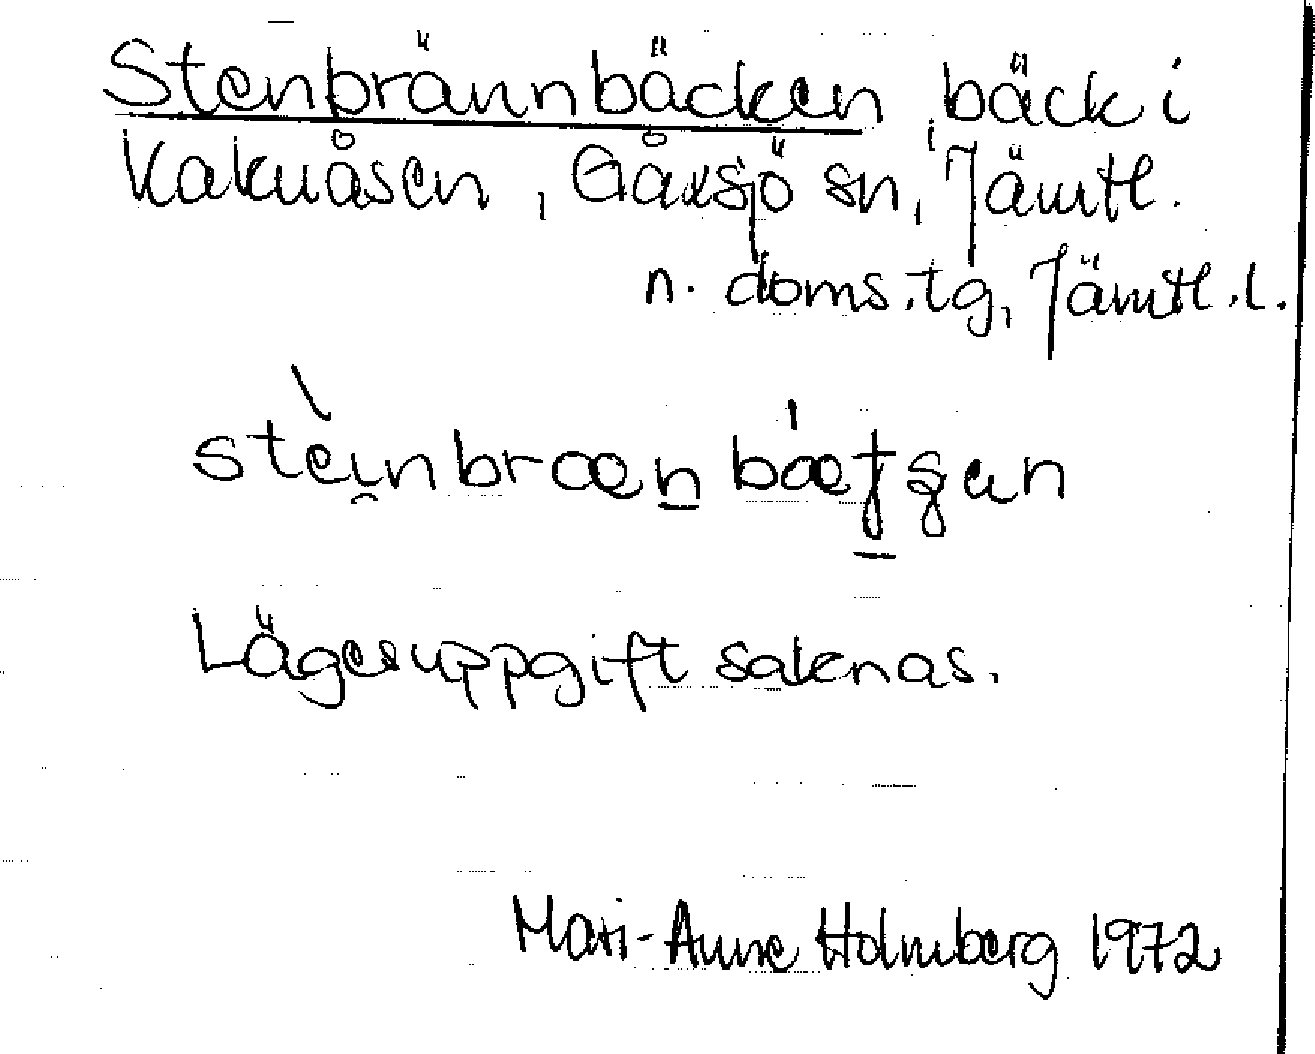 Stenbrännbäcken, bäck i
Kakuåsen, Gåxsjö sn, Jämtl.
n. doms.tg, Jämtl.l.
Lägesuppgift saknas.
Mari-Anne Holmberg 1972